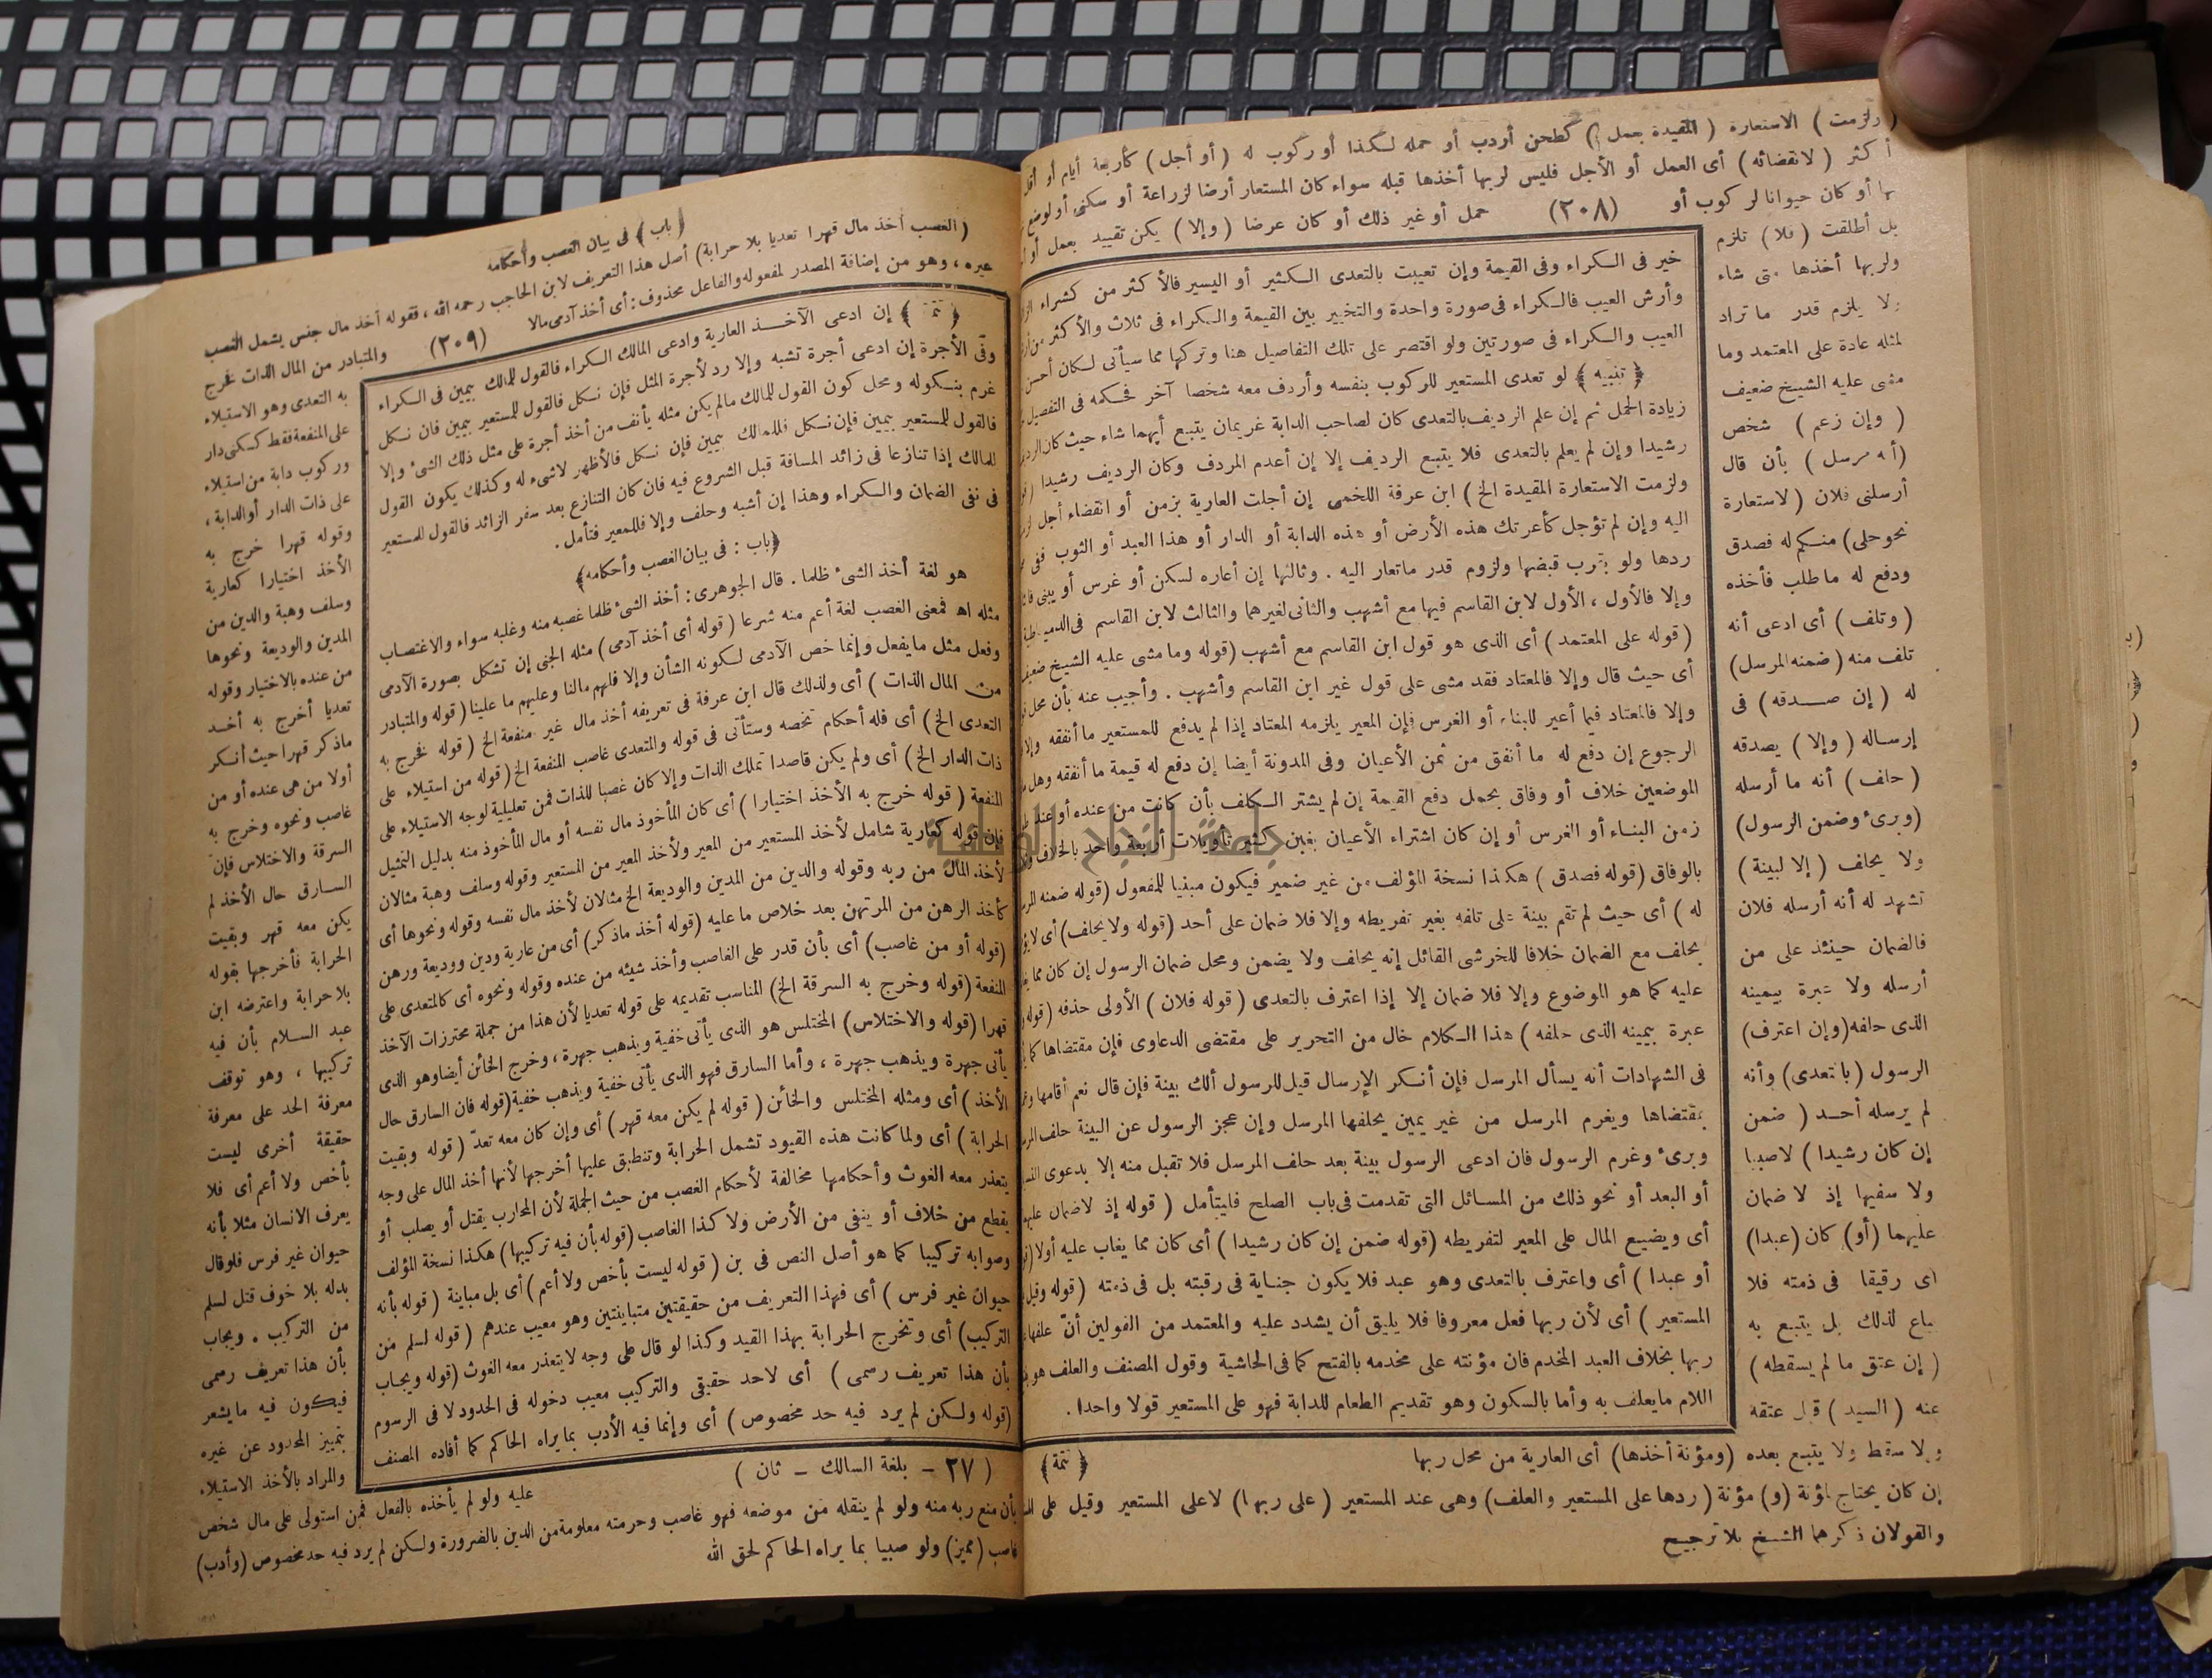 (ولزمت) الاستعارة (المقيدة بعمل) كطحن أردب أو حمله لكذا أو ركوب له (أو أجل) كأربعة أيام أو أقل
أكثر (لانقضائه) أى العمل أو الأجل فليس لربها أخذها قبله سواء كان المستعار أرضا لزراعة أو سكنى أو لوضع
بها أو كان حيوانا لركوب أو (٢٠٨) حمل أو غير ذلك أو كان عرضا (وإلا) يكن تقييد بعمل أو
بل أطلقت (فلا) تلزم
ولربها أخذها متى شاء
ولا يلزم قدر ما تراد
لمثله عادة على المعتمد وما
مشى عليه الشيخ ضعيف
(وإن زعم) شخص
(أنه مرسل) بأن قال
أرسلنى فلان (لاستعارة
نحو حلى) منكم له فصدق
ودفع له ما طلب فأخذه
(وتلف) أى ادعى أنه
تلف منه (ضمنه المرسل)
له (إن صدقه) فى
إرساله (وإلا) يصدقه
(حلف) أنه ما أرسله
(وبرىء وضمن الرسول)
ولا يحلف (إلا لبينة)
تشهد له أنه أرسله فلان
فالضمان حينئذ على من
أرسله ولا عبرة بيمينه
الذى حلفه (وإن اعترف)
الرسول (بالتعدى) وأنه
لم يرسله أحد (ضمن
إن كان رشيدا) لا صبيا
ولا سفيها إذ لا ضمان
عليهما (أو) كان (عبدا)
أى رقيقا فى ذمته فلا
يباع لذلك بل يتبع به
(إن عتق ما لم يسقطه)
عنه (السيد) قبل عتقه
ولا سقط ولا يتبع بعده (ومؤنة أخذها) أى العارية من محل ربها
إن كان يحتاج لمؤنة (و) مؤنة (ردها على المستعير والعلف) وهى عند المستعير (على ربها) لا على المستعير وقيل على
والقولان ذكرهما الشيخ بلا ترجيح
خير فى الكراء وفى القيمة وإن تعيبت بالتعدى الكثير أو اليسير فالأكثر من كراء
وأرش العيب فالكراء فى صورة واحدة والتخيير بين القيمة والكراء فى ثلاث والأكثر من
العيب والكراء فى صورتين ولو اقتصر على تلك التفاصيل هنا وتركها مما سيأتى لكان أحسن
﴿تنبيه﴾ لو تعدى المستعير للركوب بنفسه وأردف معه شخصا آخر فحكمه فى التفصيل
زيادة الحمل ثم إن علم الرديف بالتعدى كان لصاحب الدابة غريمان يتبع أيهما شاء حيث كان
رشيدا وإن لم يعلم بالتعدى فلا يتبع الرديف إلا إن أعدم المردف وكان الرديف رشيدا
ولزمت الاستعارة المقيدة الخ) ابن عرفة اللخمى إن أجلت العارية بزمن أو انقضاء أجل
اليه وإن لم تؤجل كأعرتك هذه الأرض أو هذه الدابة أو الدار أو هذا العبد أو الثوب ففى
ردها ولو بقرب قبضها ولزوم قدر ما تعار اليه . وثالثها إن أعاره لسكن أو غرس أو يبنى
وإلا فالأول ، الأول لابن القاسم فيها مع أشهب والثانى لغيرهما والثالث لابن القاسم فى الدمياطية
(قوله على المعتمد) أى الذى هو قول ابن القاسم مع أشهب (قوله وما مشى عليه الشيخ
أى حيث قال وإلا فالمعتاد فقد مشى على قول غير ابن القاسم وأشهب . وأجيب عنه بأن محل
وإلا فالمعتاد فيما أعير للبناء أو الغرس فإن المعير يلزمه المعتاد إذا لم يدفع للمستعير ما أنفقه
الرجوع إن دفع له ما أنفق من ثمن الأعيان وفى المدونة أيضا إن دفع له قيمة ما أنفقه وهل
الموضعين خلاف أو وفاق بحمل دفع القيمة إن لم يشتر الكلف بأن كانت من عنده أو عند
زمن البناء أو الغرس أو إن كان اشتراء الأعيان بغبن كثير تأويلات أربعة واحد بالخلاف
بالوفاق (قوله فصدق) هكذا نسخة المؤلف من غير ضمير فيكون مبنيا للمفعول (قوله ضمنه
له) أى حيث لم تقم بينة على تلفه بغير تفريطه وإلا فلا ضمان على أحد (قوله ولا يحلف) أى
يحلف مع الضمان خلافا للخرشى القائل إنه يحلف ولا يضمن ومحل ضمان الرسول إن كان مما
عليه كما هو الموضوع وإلا فلا ضمان إلا إذا اعترف بالتعدى (قوله فلان) الأولى حذفه (قوله
عبرة بيمينه الذى حلفه) هذا الكلام خال من التحرير على مقتضى الدعاوى فإن مقتضاها كما
فى الشهادات أنه يسأل المرسل فإن أنكر الإرسال قيل للرسول ألك بينة فإن قال نعم أقامها
بمقتضاها ويغرم المرسل من غير يمين يحلفها المرسل وإن عجز الرسول عن البينة حلف
وبرىء وغرم الرسول فان ادعى الرسول بينة بعد حلف المرسل فلا تقبل منه إلا بدعوى
أو البعد أو نحو ذلك من المسائل التى تقدمت فى باب الصلح فليتأمل (قوله إذ لا ضمان
أى ويضيع المال على المعير لتفريطه (قوله ضمن إن كان رشيدا) أى كان مما يغاب عليه أولا
أو عبدا) أى واعترف بالتعدى وهو عبد فلا يكون جناية فى رقبته بل فى ذمته (قوله وقيل
المستعير) أى لأن ربها فعل معروفا فلا يليق أن يشدد عليه والمعتمد من القولين أنّ علفها
ربها بخلاف العبد المخدم فان مؤنته على مخدمه بالفتح كما فى الحاشية وقول المصنف والعلف هو
اللام ما يعلف به وأما بالسكون وهو تقديم الطعام للدابة فهو على المستعير قولا واحدا .
﴿تتمة﴾
﴿باب﴾ فى بيان الغصب وأحكامه
(الغصب أخذ مال قهرا تعديا بلا حرابة) أصل هذا التعريف لابن الحاجب رحمه الله ، فقوله أخذ مال جنس يشمل الغصب
غيره ، وهو من إضافة المصدر لمفعوله والفاعل محذوف : أى أخذ آدمى مالا (٢٠٩) والمتبادر من المال الذات فخرج
به التعدى وهو الاستيلاء
على المنفعة فقط كسكنى دار
وركوب دابة من استيلاء
على ذات الدار أو الدابة ،
وقوله قهرا خرج به
الأخذ اختيارا كعارية
وسلف وهبة والدين من
المدين والوديعة ونحوها
من عنده بالاختيار وقوله
تعديا أخرج به أخذ
ما ذكر قهرا حيث أنكر
أولا من هى عنده أو من
غاصب ونحوه وخرج به
السرقة والاختلاس فإنّ
السارق حال الأخذ لم
يكن معه قهر وبقيت
الحرابة فأخرجها بقوله
بلا حرابة واعترضه ابن
عبد السلام بأن فيه
تركيبها ، وهو توقف
معرفة الحد على معرفة
حقيقة أخرى ليست
بأخص ولا أعم أى فلا
يعرف الانسان مثلا بأنه
حيوان غير فرس فلو قال
بدله بلا خوف قتل لسلم
من التركيب . ويجاب
بأن هذا تعريف رسمى
فيكون فيه ما يشعر
بتمييز المحدود عن غيره
والمراد بالأخذ الاستيلاء
عليه ولو لم يأخذه بالفعل فمن استولى على مال شخص
بأن منع ربه منه ولو لم ينقله من موضعه فهو غاصب وحرمته معلومة من الدين بالضرورة ولكن لم يرد فيه حد مخصوص (وأدب)
غاصب (مميز) ولو صبيا بما يراه الحاكم لحق الله
﴿تتمة﴾ إن ادعى الآخذ العارية وادعى المالك الكراء فالقول للمالك بيمين فى الكراء
وفى الأجرة إن ادعى أجرة تشبه وإلا رد لأجرة المثل فإن نكل فالقول للمستعير بيمين فان نكل
غرم بنكوله ومحل كون القول للمالك ما لم يكن مثله يأنف من أخذ أجرة على مثل ذلك الشىء وإلا
فالقول للمستعير بيمين فإن نكل فللمالك بيمين فإن نكل فالأظهر لا شىء له وكذلك يكون القول
للمالك إذا تنازعا فى زائد المسافة قبل الشروع فيه فان كان التنازع بعد سفر الزائد فالقول للمستعير
فى نفى الضمان والكراء وهذا إن أشبه وحلف وإلا فللمعير فتأمل .
﴿باب : فى بيان الغصب وأحكامه﴾
هو لغة أخذ الشىء ظلما . قال الجوهرى : أخذ الشىء ظلما غصبه منه وغلبه سواء والاغتصاب
مثله اه فمعنى الغصب لغة أعم منه شرعا (قوله أى أخذ آدمى) مثله الجنى إن تشكل بصورة الآدمى
وفعل مثل ما يفعل وإنما خص الآدمى لكونه الشأن وإلا فلهم مالنا وعليهم ما علينا (قوله والمتبادر
من المال الذات) أى ولذلك قال ابن عرفة فى تعريفه أخذ مال غير منفعة الخ (قوله فخرج به
التعدى الخ) أى فله أحكام تخصه وستأتى فى قوله والمتعدى غاصب المنفعة الخ (قوله من استيلاء على
ذات الدار الخ) أى ولم يكن قاصدا تملك الذات وإلا كان غصبا للذات فمن تعليلية لوجه الاستيلاء على
المنفعة (قوله خرج به الأخذ اختيارا) أى كان المأخوذ مال نفسه أو مال المأخوذ منه بدليل التمثيل
فإن قوله كعارية شامل لأخذ المستعير من المعير ولأخذ المعير من المستعير وقوله وسلف وهبة مثالان
لأخذ المال من ربه وقوله والدين من المدين والوديعة الخ مثالان لأخذ مال نفسه وقوله ونحوها أى
كأخذ الرهن من المرتهن بعد خلاص ما عليه (قوله أخذ ما ذكر) أى من عارية ودين ووديعة ورهن
(قوله أو من غاصب) أى بأن قدر على الغاصب وأخذ شيئه من عنده وقوله ونحوه أى كالمتعدى على
المنفعة (قوله وخرج به السرقة الخ) المناسب تقديمه على قوله تعديا لأن هذا من جملة محترزات الآخذ
قهرا (قوله والاختلاس) المختلس هو الذى يأتى خفية ويذهب جهرة ، وخرج الخائن أيضا وهو الذى
يأتى جهرة ويذهب جهرة ، وأما السارق فهو الذى يأتى خفية ويذهب خفية (قوله فان السارق حال
الأخذ) أى ومثله المختلس والخائن (قوله لم يكن معه قهر) أى وإن كان معه تعدّ (قوله وبقيت
الحرابة) أى ولما كانت هذه القيود تشمل الحرابة وتنطبق عليها أخرجها لأنها أخذ المال على وجه
يتعذر معه الغوث وأحكامها مخالفة لأحكام الغصب من حيث الجملة لأن المحارب يقتل أو يصلب أو
يقطع من خلاف أو ينفى من الأرض ولا كذا الغاصب (قوله بأن فيه تركيبها) هكذا نسخة المؤلف
وصوابه تركيبا كما هو أصل النص فى بن (قوله ليست بأخص ولا أعم) أى بل مباينة (قوله بأنه
حيوان غير فرس) أى فهذا التعريف من حقيقتين متباينتين وهو معيب عندهم (قوله لسلم من
التركيب) أى وتخرج الحرابة بهذا القيد وكذا لو قال على وجه لا يتعذر معه الغوث (قوله ويجاب
بأن هذا تعريف رسمى) أى لا حد حقيقى والتركيب معيب دخوله فى الحدود لا فى الرسوم
(قوله ولكن لم يرد فيه حد مخصوص) أى وإنما فيه الأدب بما يراه الحاكم كما أفاده المصنف
(٢٧ - بلغة السالك - ثان)
جامعة النجاح الوطنية